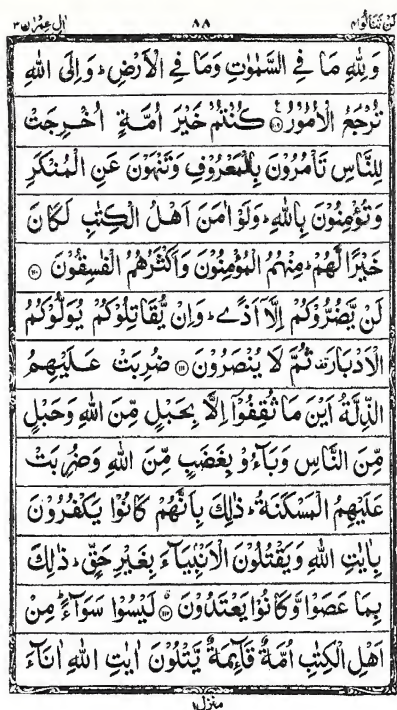 لَنْ تَنَالُوا ٤ ٨٨ اٰلِ عِمْرٰن ٣
وَلِلّٰهِ مَا فِي السَّمٰوٰتِ وَمَا فِي الْاَرْضِ ؕ وَاِلَى اللّٰهِ
تُرْجَعُ الْاُمُوْرُ ﴿۱۰۹﴾ كُنْتُمْ خَيْرَ اُمَّةٍ اُخْرِجَتْ
لِلنَّاسِ تَاْمُرُوْنَ بِالْمَعْرُوْفِ وَتَنْهَوْنَ عَنِ الْمُنْكَرِ
وَتُؤْمِنُوْنَ بِاللّٰهِ ؕ وَلَوْ اٰمَنَ اَهْلُ الْكِتٰبِ لَكَانَ
خَيْرًا لَّهُمْ ؕ مِنْهُمُ الْمُؤْمِنُوْنَ وَاَكْثَرُهُمُ الْفٰسِقُوْنَ ﴿۱۱۰﴾
لَنْ يَّضُرُّوْكُمْ اِلَّاۤ اَذًى ؕ وَاِنْ يُّقَاتِلُوْكُمْ يُوَلُّوْكُمُ
الْاَدْبَارَ ۫ ثُمَّ لَا يُنْصَرُوْنَ ﴿۱۱۱﴾ ضُرِبَتْ عَلَيْهِمُ
الذِّلَّةُ اَيْنَ مَا ثُقِفُوْۤا اِلَّا بِحَبْلٍ مِّنَ اللّٰهِ وَحَبْلٍ
مِّنَ النَّاسِ وَبَآءُوْ بِغَضَبٍ مِّنَ اللّٰهِ وَضُرِبَتْ
عَلَيْهِمُ الْمَسْكَنَةُ ؕ ذٰلِكَ بِاَنَّهُمْ كَانُوْا يَكْفُرُوْنَ
بِاٰيٰتِ اللّٰهِ وَيَقْتُلُوْنَ الْاَنْۢبِيَآءَ بِغَيْرِ حَقٍّ ؕ ذٰلِكَ
بِمَا عَصَوْا وَّكَانُوْا يَعْتَدُوْنَ ﴿۱۱۲﴾ لَيْسُوْا سَوَآءً ؕ مِنْ
اَهْلِ الْكِتٰبِ اُمَّةٌ قَآئِمَةٌ يَّتْلُوْنَ اٰيٰتِ اللّٰهِ اٰنَآءَ
منزل ١